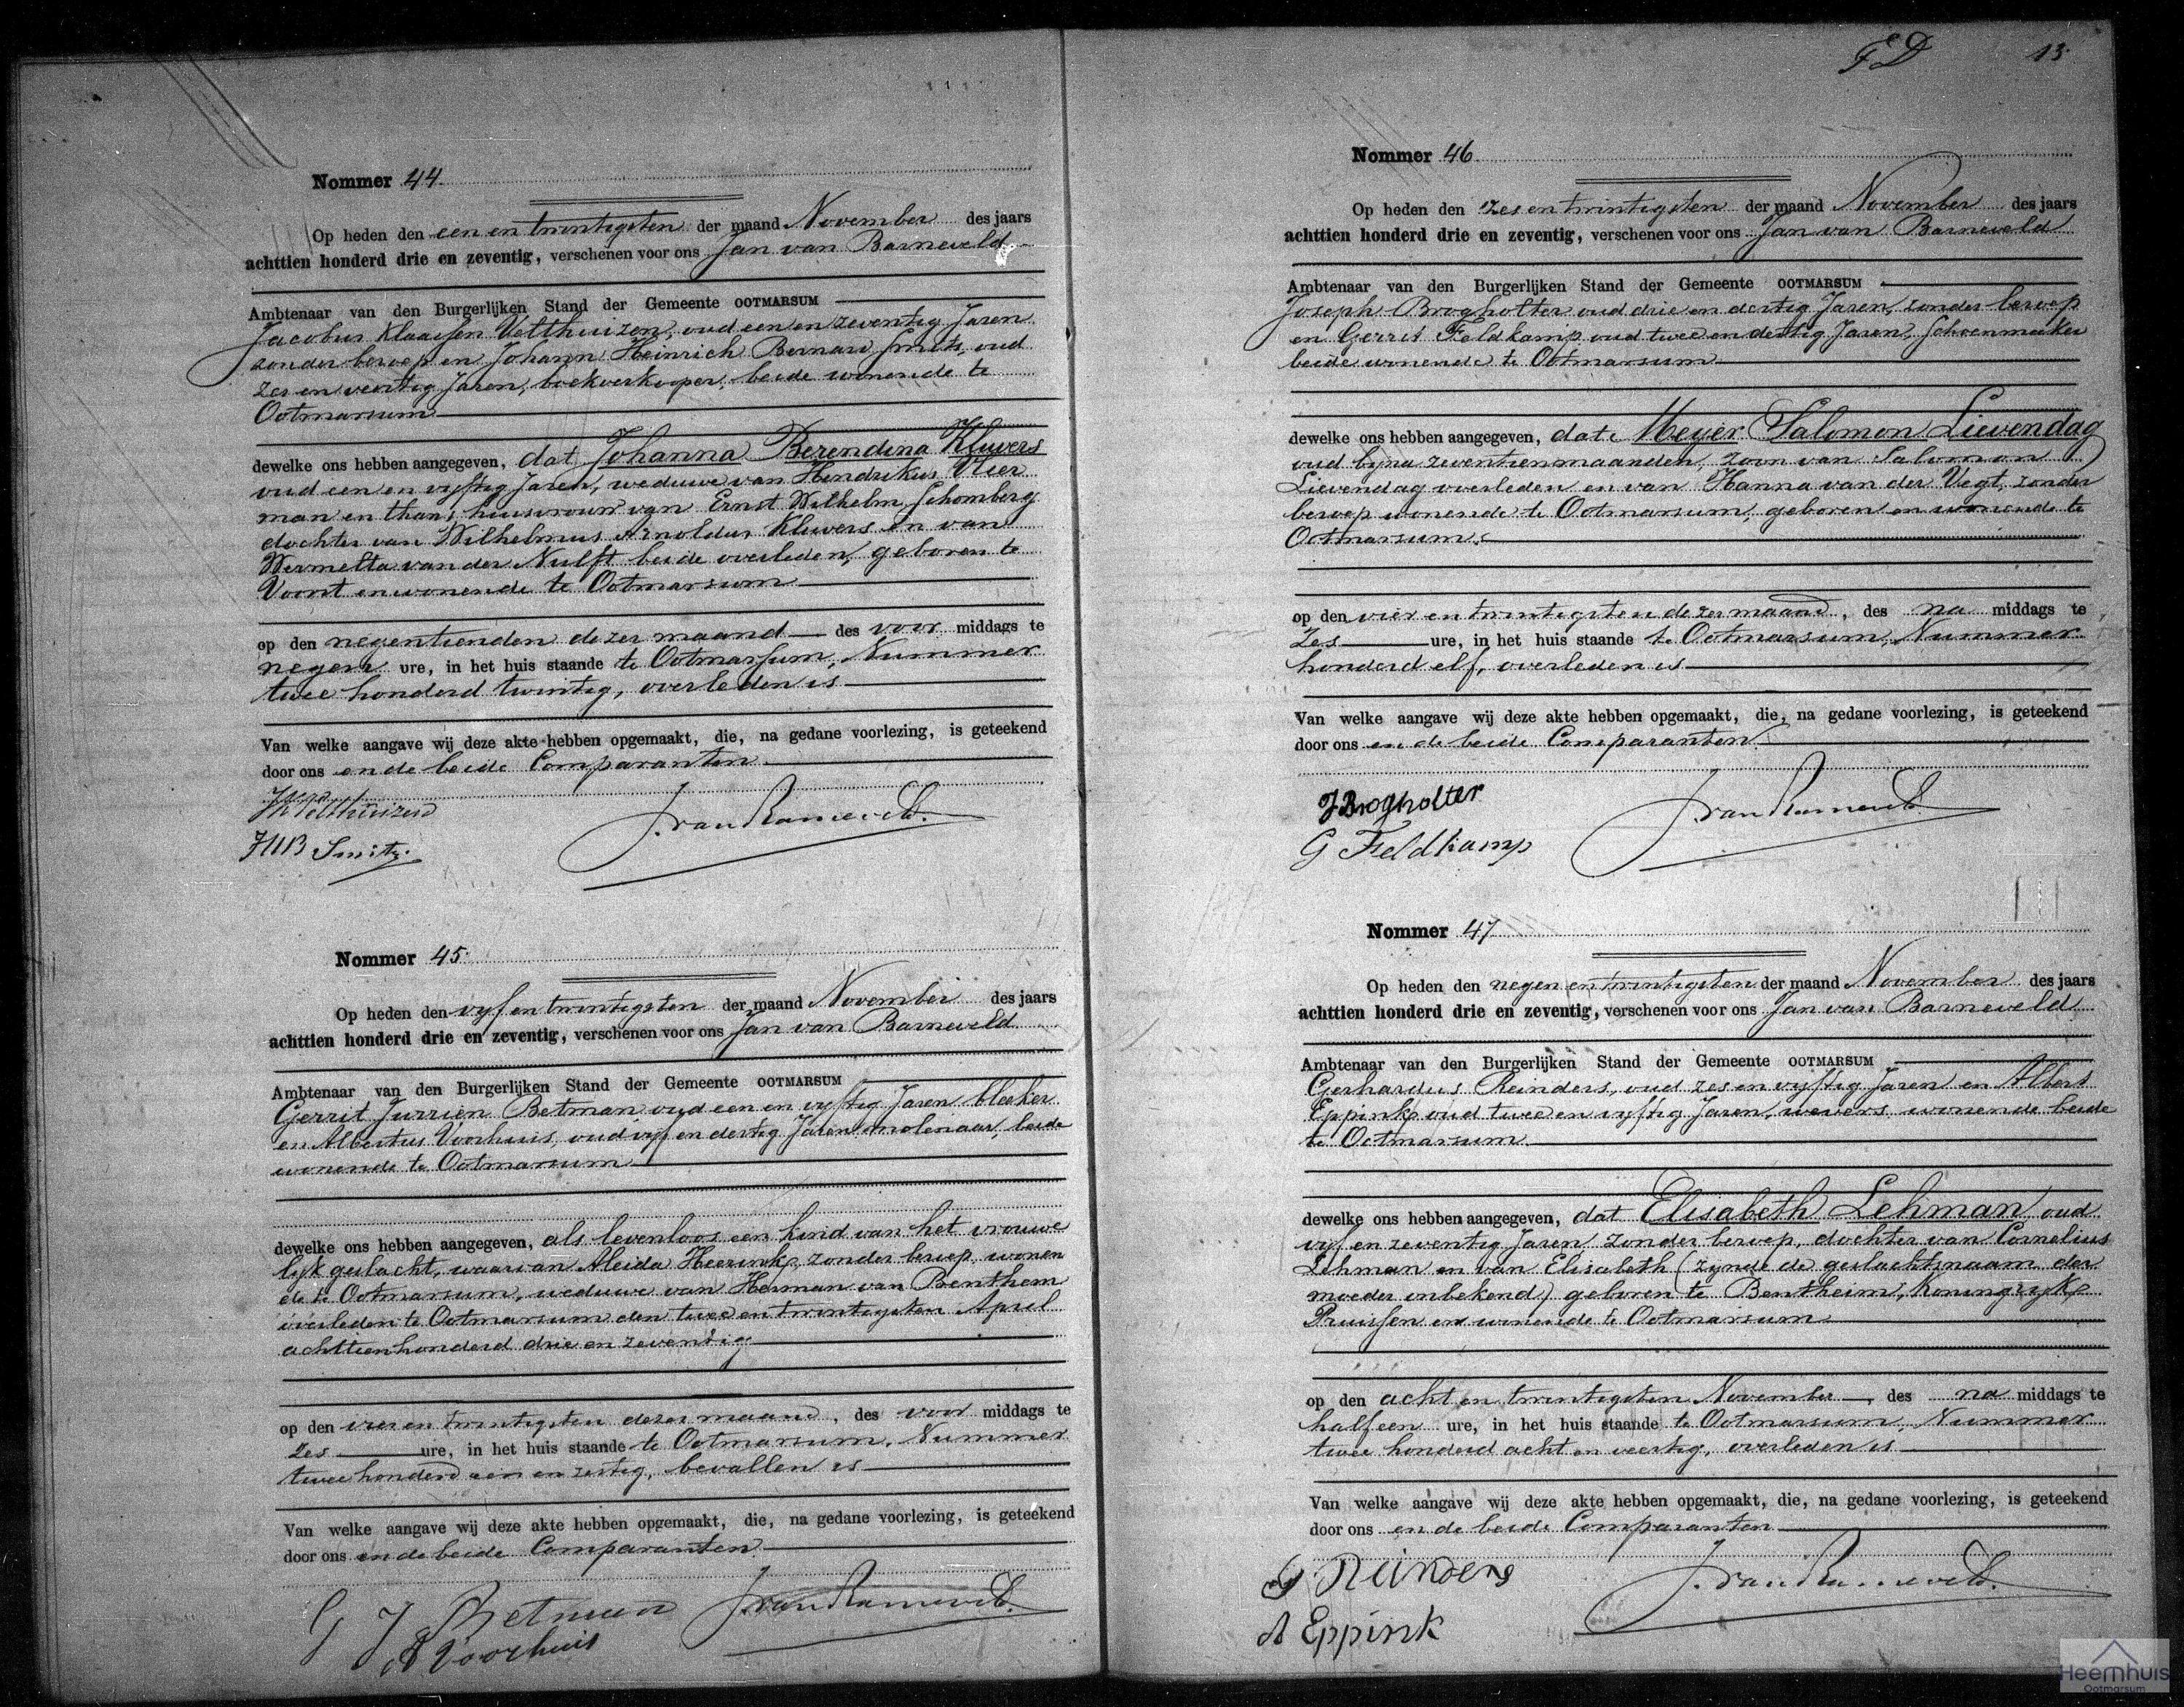 Nommer 44
Op heden den een en twintigsten der maand November des jaars
achttien honderd drie en zeventig, verschenen voor ons Jan van Barneveld
Ambtenaar van den Burgerlijken Stand der Gemeente OOTMARSUM
Jacobus Klaassen Velthuizen, oud een en zeventig Jaren
zonder beroep en Johann Heinrich Bernard Smits, oud
zes en veertig Jaren, boekverkooper, beide wonende te
Ootmarsum
dewelke ons hebben aangegeven, dat Johanna Berendina Kluvers
oud een en vyftig Jaren, weduwe van Hendrikus Vlier
man en thans huisvrouw van Ernst Wilhelm Schomberg
dochter van Wilhelmus Arnoldus Kluvers en van
Wermelta van der Nulft beide overleden, geboren te
Voorst en wonende te Ootmarsum
op den negentienden dezer maand des voor middags te
negen ure, in het huis staande te Ootmarsum, Nummer
twee honderd twintig, overleden is
Van welke aangave wij deze akte hebben opgemaakt, die, na gedane voorlezing, is geteekend
door ons en de beide Comparanten
JK Velthuizen
JHB Smits.
J. van Barneveld.
Nommer 45.
Op heden den vyf en twintigsten der maand November des jaars
achttien honderd drie en zeventig, verschenen voor ons Jan van Barneveld
Ambtenaar van den Burgerlijken Stand der Gemeente OOTMARSUM
Gerrit Jurrien Betman oud een en vyftig Jaren bleeker
en Albertus Voorhuis, oud vyf en dertig Jaren molenaar, beide
wonende te Ootmarsum
dewelke ons hebben aangegeven, als levenloos een kind van het vrouwe
lyk geslacht, waarvan Aleida Heerink, zonder beroep, wonen
de te Ootmarsum, weduwe van Herman van Benthem
overleden te Ootmarsum den twee en twintigsten April
achttienhonderd drie en zeventig
op den vier en twintigsten dezer maand, des voor middags te
zes ure, in het huis staande te Ootmarsum, Nummer
twee honderd een en zestig, bevallen is
Van welke aangave wij deze akte hebben opgemaakt, die, na gedane voorlezing, is geteekend
door ons en de beide Comparanten
G J Betman
A Voorhuis
J. van Barneveld.
FD 13.
Nommer 46
Op heden den zes en twintigsten der maand November des jaars
achttien honderd drie en zeventig, verschenen voor ons Jan van Barneveld
Ambtenaar van den Burgerlijken Stand der Gemeente OOTMARSUM
Joseph Brogholter oud drie en dertig Jaren, zonder beroep
en Gerrit Feldkamp oud twee en dertig Jaren, Schoenmaker
beide wonende te Ootmarsum
dewelke ons hebben aangegeven, dat Meyer Salomon Lievendag
oud byna zeventien maanden, zoon van Salomon
Lievendag overleden en van Hanna van der Vegt, zonder
beroep wonende te Ootmarsum, geboren en wonende te
Ootmarsum
op den vier en twintigsten dezer maand, des na middags te
Zes ure, in het huis staande te Ootmarsum, Nummer
honderd elf, overleden is
Van welke aangave wij deze akte hebben opgemaakt, die, na gedane voorlezing, is geteekend
door ons en de beide Comparanten
J Brogholter
G Feldkamp
J. van Barneveld.
Nommer 47
Op heden den negen en twintigsten der maand November des jaars
achttien honderd drie en zeventig, verschenen voor ons Jan van Barneveld
Ambtenaar van den Burgerlijken Stand der Gemeente OOTMARSUM
Gerhardus Reinders, oud zes en vyftig Jaren en Albert
Eppink oud twee en vyftig Jaren, wevers wonende beide
te Ootmarsum
dewelke ons hebben aangegeven, dat Elisabeth Lehman oud
vyf en zeventig Jaren zonder beroep, dochter van Cornelius
Lehman en van Elisabeth (zynde de geslachtsnaam der
moeder onbekend) geboren te Bentheim, Koningryk
Pruissen en wonende te Ootmarsum
op den acht en twintigsten November, des na middags te
half een ure, in het huis staande te Ootmarsum, Nummer
twee honderd acht en veertig, overleden is
Van welke aangave wij deze akte hebben opgemaakt, die, na gedane voorlezing, is geteekend
door ons en de beide Comparanten
G Reinders
A Eppink
J. van Barneveld.
Heemhuis
Ootmarsum